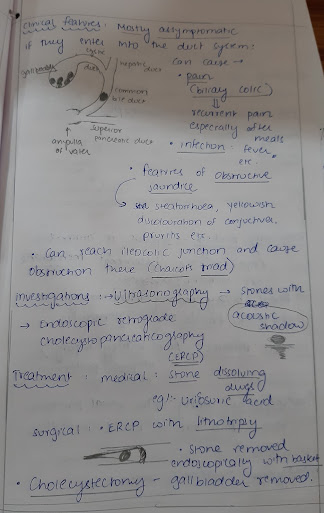 Clinical features: Mostly assymptomatic
if they enter into the duct system:
can cause →
cystic duct
hepatic duct
gallbladder
common bile duct
superior pancreatic duct
ampulla of vater
• pain
(biliary colic)
⇓
recurrent pain
especially after
meals
• infection: fever,
etc..
• features of obstructive
jaundice
steatorrhoea, yellowish
discolouration of conjuctiva,
pruritis etc..
• Can reach ileocolic junction and cause
obstruction there (Charcot's triad)
Investigations: → Ultrasonography → stones with
acoustic
shadow
→ Endoscopic retrograde
cholecystopancreaticography
(ERCP)
Treatment: medical: stone dissolving
drugs
eg:- Uriosuric acid
surgical: • ERCP with litnotripy
• stone removed
endoscopically with basket
• Cholecystectomy - gallbladder removed.